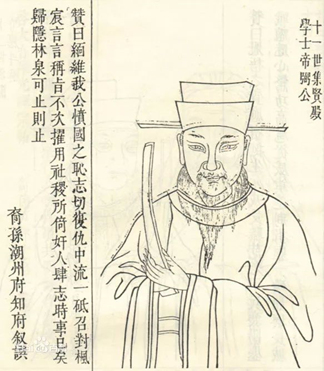 十一世集賢殿
學士帝弼公
贊曰緬維我公憤國之恥志切復仇中流一砥召對楓
宸言言稱旨不次擢用社稷所倚奸人肆志時事已矣
歸隱林泉可止則止
裔孫湖州府知府叙譔